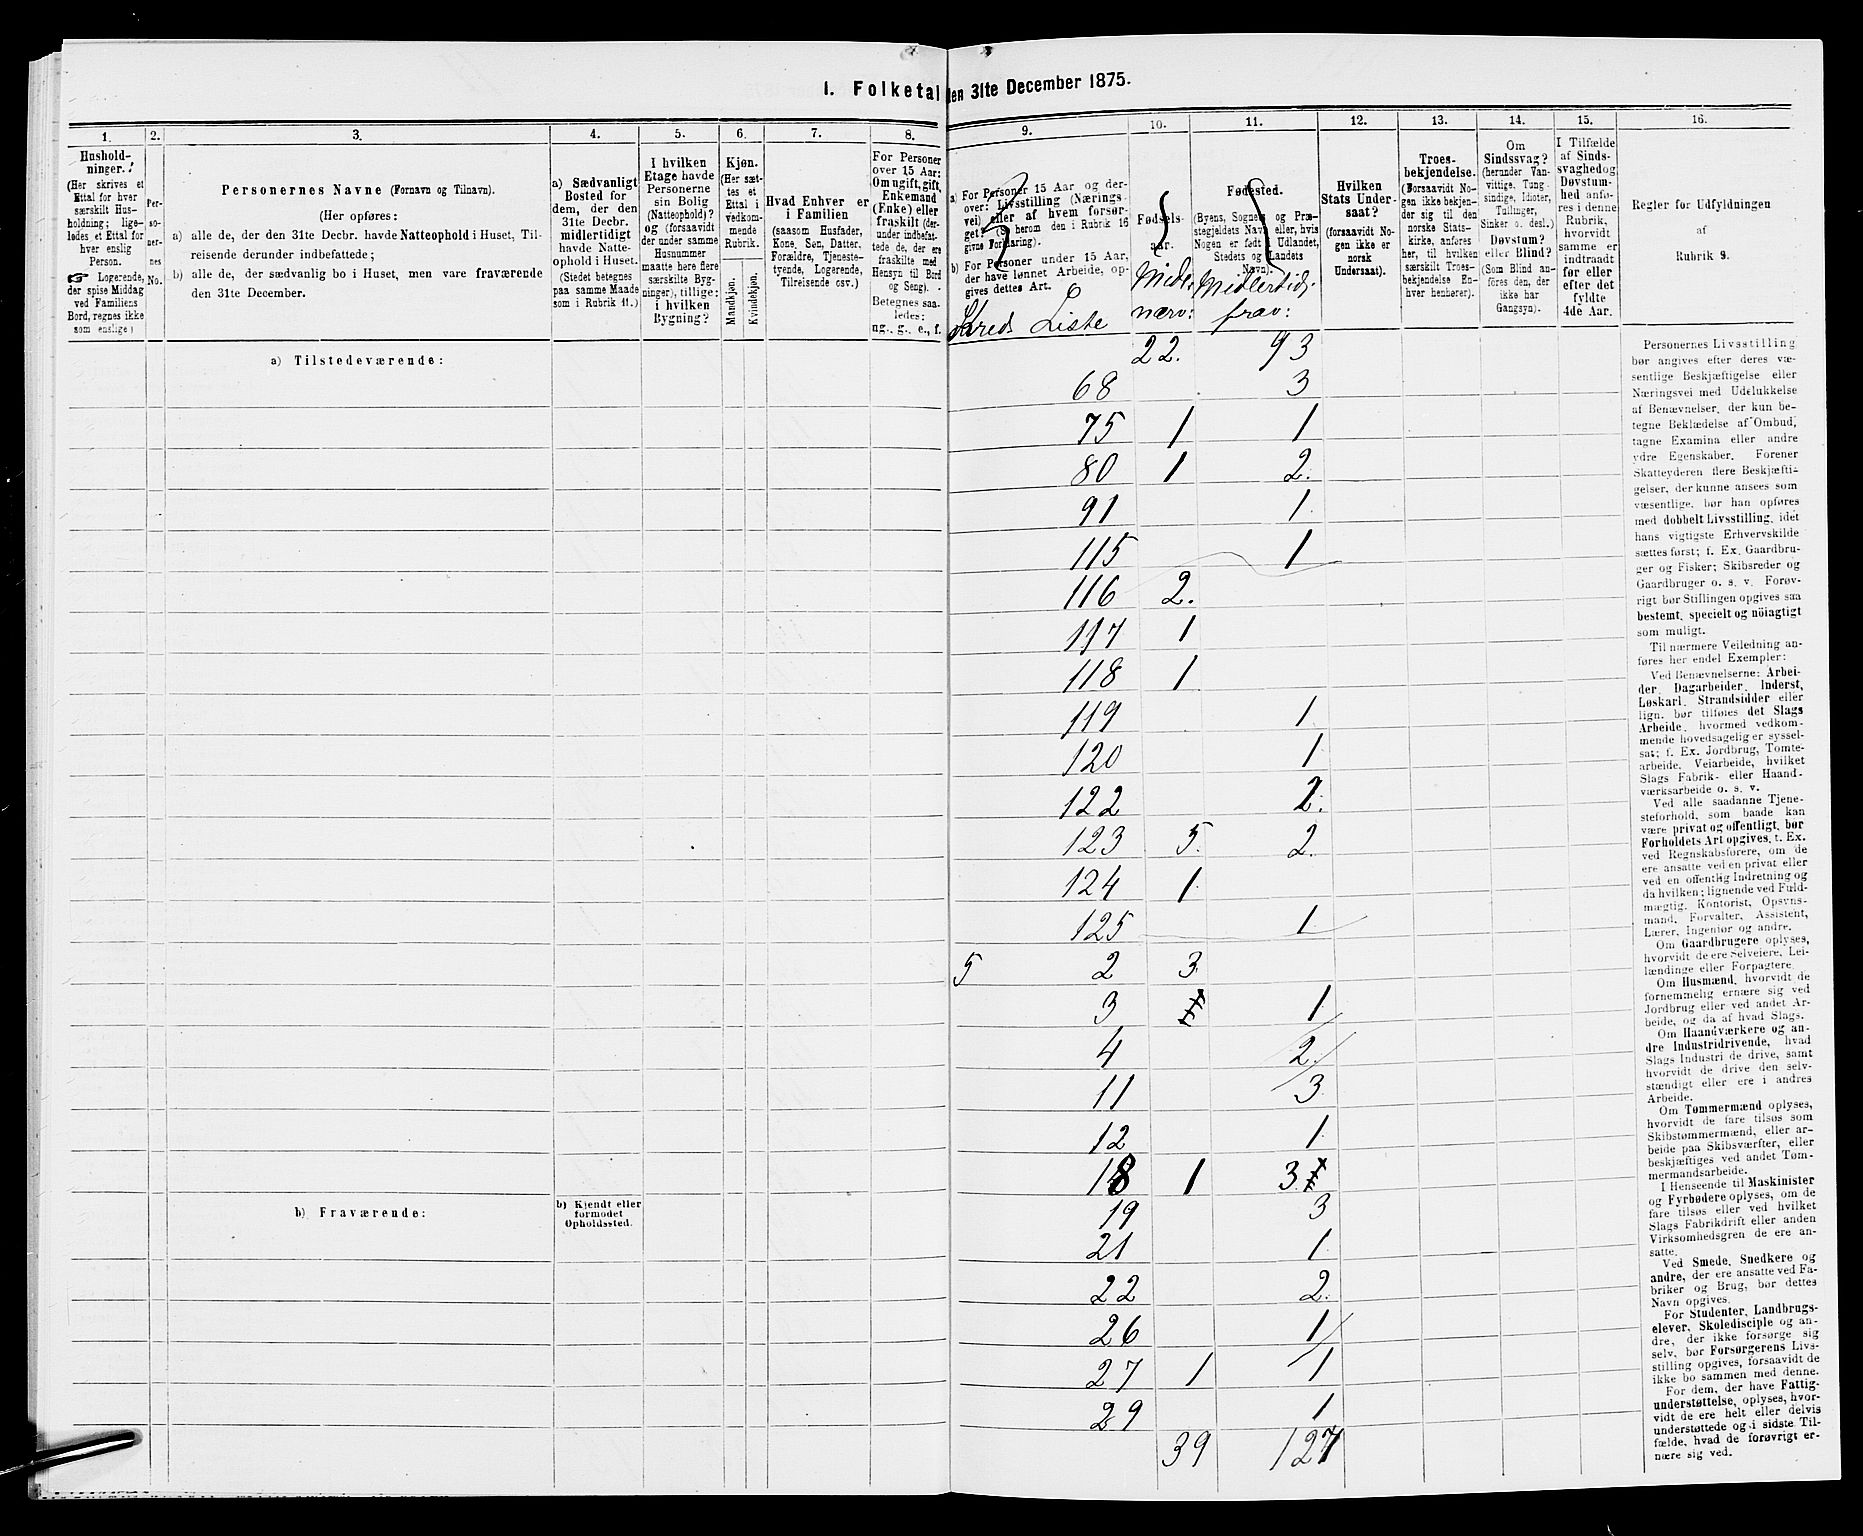 1. Folketal den 31te December 1875.
1.
2.
3.
4.
5.
6.
7.
8.
9.
10.
11.
12.
13.
14.
15.
16.
Hushold-
ninger.
(Her skrives et
Ettal for hver
særskilt Hus-
holdning; lige-
ledes et Ettal for
hver enslig
Person.
☞ Logerende,
der spise Middag
ved Familiens
Bord, regnes ikke
som enslige)
Per-
so-
ner-
nes
No.
Personernes Navne (Fornavn og Tilnavn).
(Her opføres:
a) alle de, der den 31te Decbr. havde Natteophold i Huset, Til-
reisende derunder indbefattede;
b) alle de, der sædvanlig bo i Huset, men vare fraværende
den 31te December.
a) Sædvanligt
Bosted for
dem, der den
31te Decbr.
midlertidigt
havde Natte-
ophold i Huset.
(Stedet betegnes
paa samme Maade
som i Rubrik 11.)
I hvilken
Etage havde
Personerne
sin Bolig
(Natteophold)?
og (forsaavidt
der under samme
Husnummer
maatte høre flere
særskilte Byg-
ninger), tillige:
i hvilken
Bygning?
Kjøn.
(Her sæt-
tes et
Ettal i
vedkom-
mende
Rubrik.
Mandkjøn.
Kvindekjøn.
Hvad Enhver er
i Familien
(saasom Husfader,
Kone, Søn, Datter,
Forældre, Tjeneste-
tyende, Logerende,
Tilreisende osv.)
For Personer
over 15 Aar:
Om ugift, gift,
Enkemand
(Enke) eller
fraskilt (der-
under indbefat-
tede de, der ere
fraskilte med
Hensyn til Bord
og Seng).
Betegnes saa-
ledes:
ug., g., e., f.
a) For Personer 15 Aar og der-
over: Livsstilling (Nærings-
vei) eller af hvem forsør-
get? (Se herom den i Rubrik 16
givne Forklaring).
b) For Personer under 15 Aar,
der have lønnet Arbeide, op-
gives dettes Art.
Kreds Liste
Fødsels-
aar.
Midl.
nærv:
Fødested.
(Byens, Sognets og Præ-
stegjeldets Navn eller, hvis
Nogen er født i Udlandet,
Stedets og Landets
Navn).
Midlertid.
frav:
Hvilken
Stats Under-
saat?
(forsaavidt No-
gen ikke er
norsk
Undersaat).
Troes-
bekjendelse.
(Forsaavidt No-
gen ikke bekjen-
der sig til den
norske Stats-
kirke, anføres
her, til hvilken
særskilt Troes-
bekjendelse En-
hver henhører).
Om
Sindssvag?
(herunder Van-
vittige, Tung-
sindige, Idioter,
Tullinger,
Sinker o. desl.).
Døvstum?
eller Blind?
(Som Blind an-
føres den, der
ikke har
Gangsyn).
I Tilfælde
af Sinds-
svaghedog
Døvstum-
hed anfø-
res i denne
Rubrik,
hvorvidt
samme er
indtraadt
før eller
efter det
fyldte
4de Aar.
Regler for Udfyldningen
af
Rubrik 9.
a) Tilstedeværende:
22. 93
68 3
75 1 1
80 1 2.
91 1
115 1
116 2.
117 1
118 1
119 1
120 1
122 2.
123 5. 2.
124 1
125 1
5 2 3
3 1
4 2.
11 3
12 1
18 1 3
19 3
21 1
22 2.
26 1
27 1 1
29 1
39 127
b) Fraværende:
b) Kjendt eller
formodet
Opholdssted.
Personernes Livsstilling
bør angives efter deres væ-
sentlige Beskjæftigelse eller
Næringsvei med Udelukkelse
af Benævnelser, der kun be-
tegne Beklædelse af Ombud,
tagne Examina eller andre
ydre Egenskaber. Forener
Skatteyderen flere Beskjæfti-
gelser, der kunne ansees som
væsentlige, bør han opføres
med dobbelt Livsstilling, idet
hans vigtigste Erhvervskilde
sættes først; f. Ex. Gaardbru-
ger og Fisker; Skibsreder og
Gaardbruger o. s. v. Forøv-
rigt bør Stillingen opgives saa
bestemt, specielt og nöiagtigt
som muligt.
Til nærmere Veiledning an-
føres her endel Exempler:
Ved Benævnelserne: Arbei-
der, Dagarbeider, Inderst,
Løskarl, Strandsidder eller
lign. bør tilføies det Slags
Arbeide, hvormed vedkom-
mende hovedsagelig er syssel-
sat; f. Ex. Jordbrug, Tomte-
arbeide, Veiarbeide, hvilket
Slags Fabrik- eller Haand-
værksarbeide o. s. v.
Ved alle saadanne Tjene-
steforhold, som baade kan
være privat og offentligt, bør
Forholdets Art opgives, f. Ex.
ved Regnskabsførere, om de
ere ansatte ved en privat eller
ved en offentlig Indretning og
da hvilken; lignende ved Fuld-
mægtig, Kontorist, Opsyns-
mand, Forvalter, Assistent,
Lærer, Ingeniør og andre.
Om Gaardbrugere oplyses,
hvorvidt de ere Selveiere, Lei-
lændinge eller Forpagtere.
Om Husmænd, hvorvidt de
fornemmelig ernære sig ved
Jordbrug eller ved andet Ar-
beide, og da af hvad Slags.
Om Haandværkere og an-
dre Industridrivende, hvad
Slags Industri de drive, samt
hvorvidt de drive den selv-
stændigt eller ere i andres
Arbeide.
Om Tømmermænd oplyses,
hvorvidt de fare tilsøs som
Skibstømmermænd, eller ar-
beide paa Skibsværfter, eller
beskjæftiges ved andet Tøm-
mermandsarbeide.
I Henseende til Maskinister
og Fyrbødere oplyses, om de
fare tilsøs eller ved hvilket
Slags Fabrikdrift eller anden
Virksomhedsgren de ere an-
satte.
Ved Smede, Snedkere og
andre, der ere ansatte ved Fa-
briker og Brug, bør dettes
Navn opgives.
For Studenter, Landbrugs-
elever, Skoledisciple og an-
dre, der ikke forsørge sig
selv, bør Forsørgerens Livs-
stilling opgives, forsaavidt de
ikke bo sammen med denne.
For dem, der have Fattig-
understøttelse, oplyses, hvor-
vidt de ere helt eller delvis
understøttede og i sidste Til-
fælde, hvad de forøvrigt er-
nære sig ved.